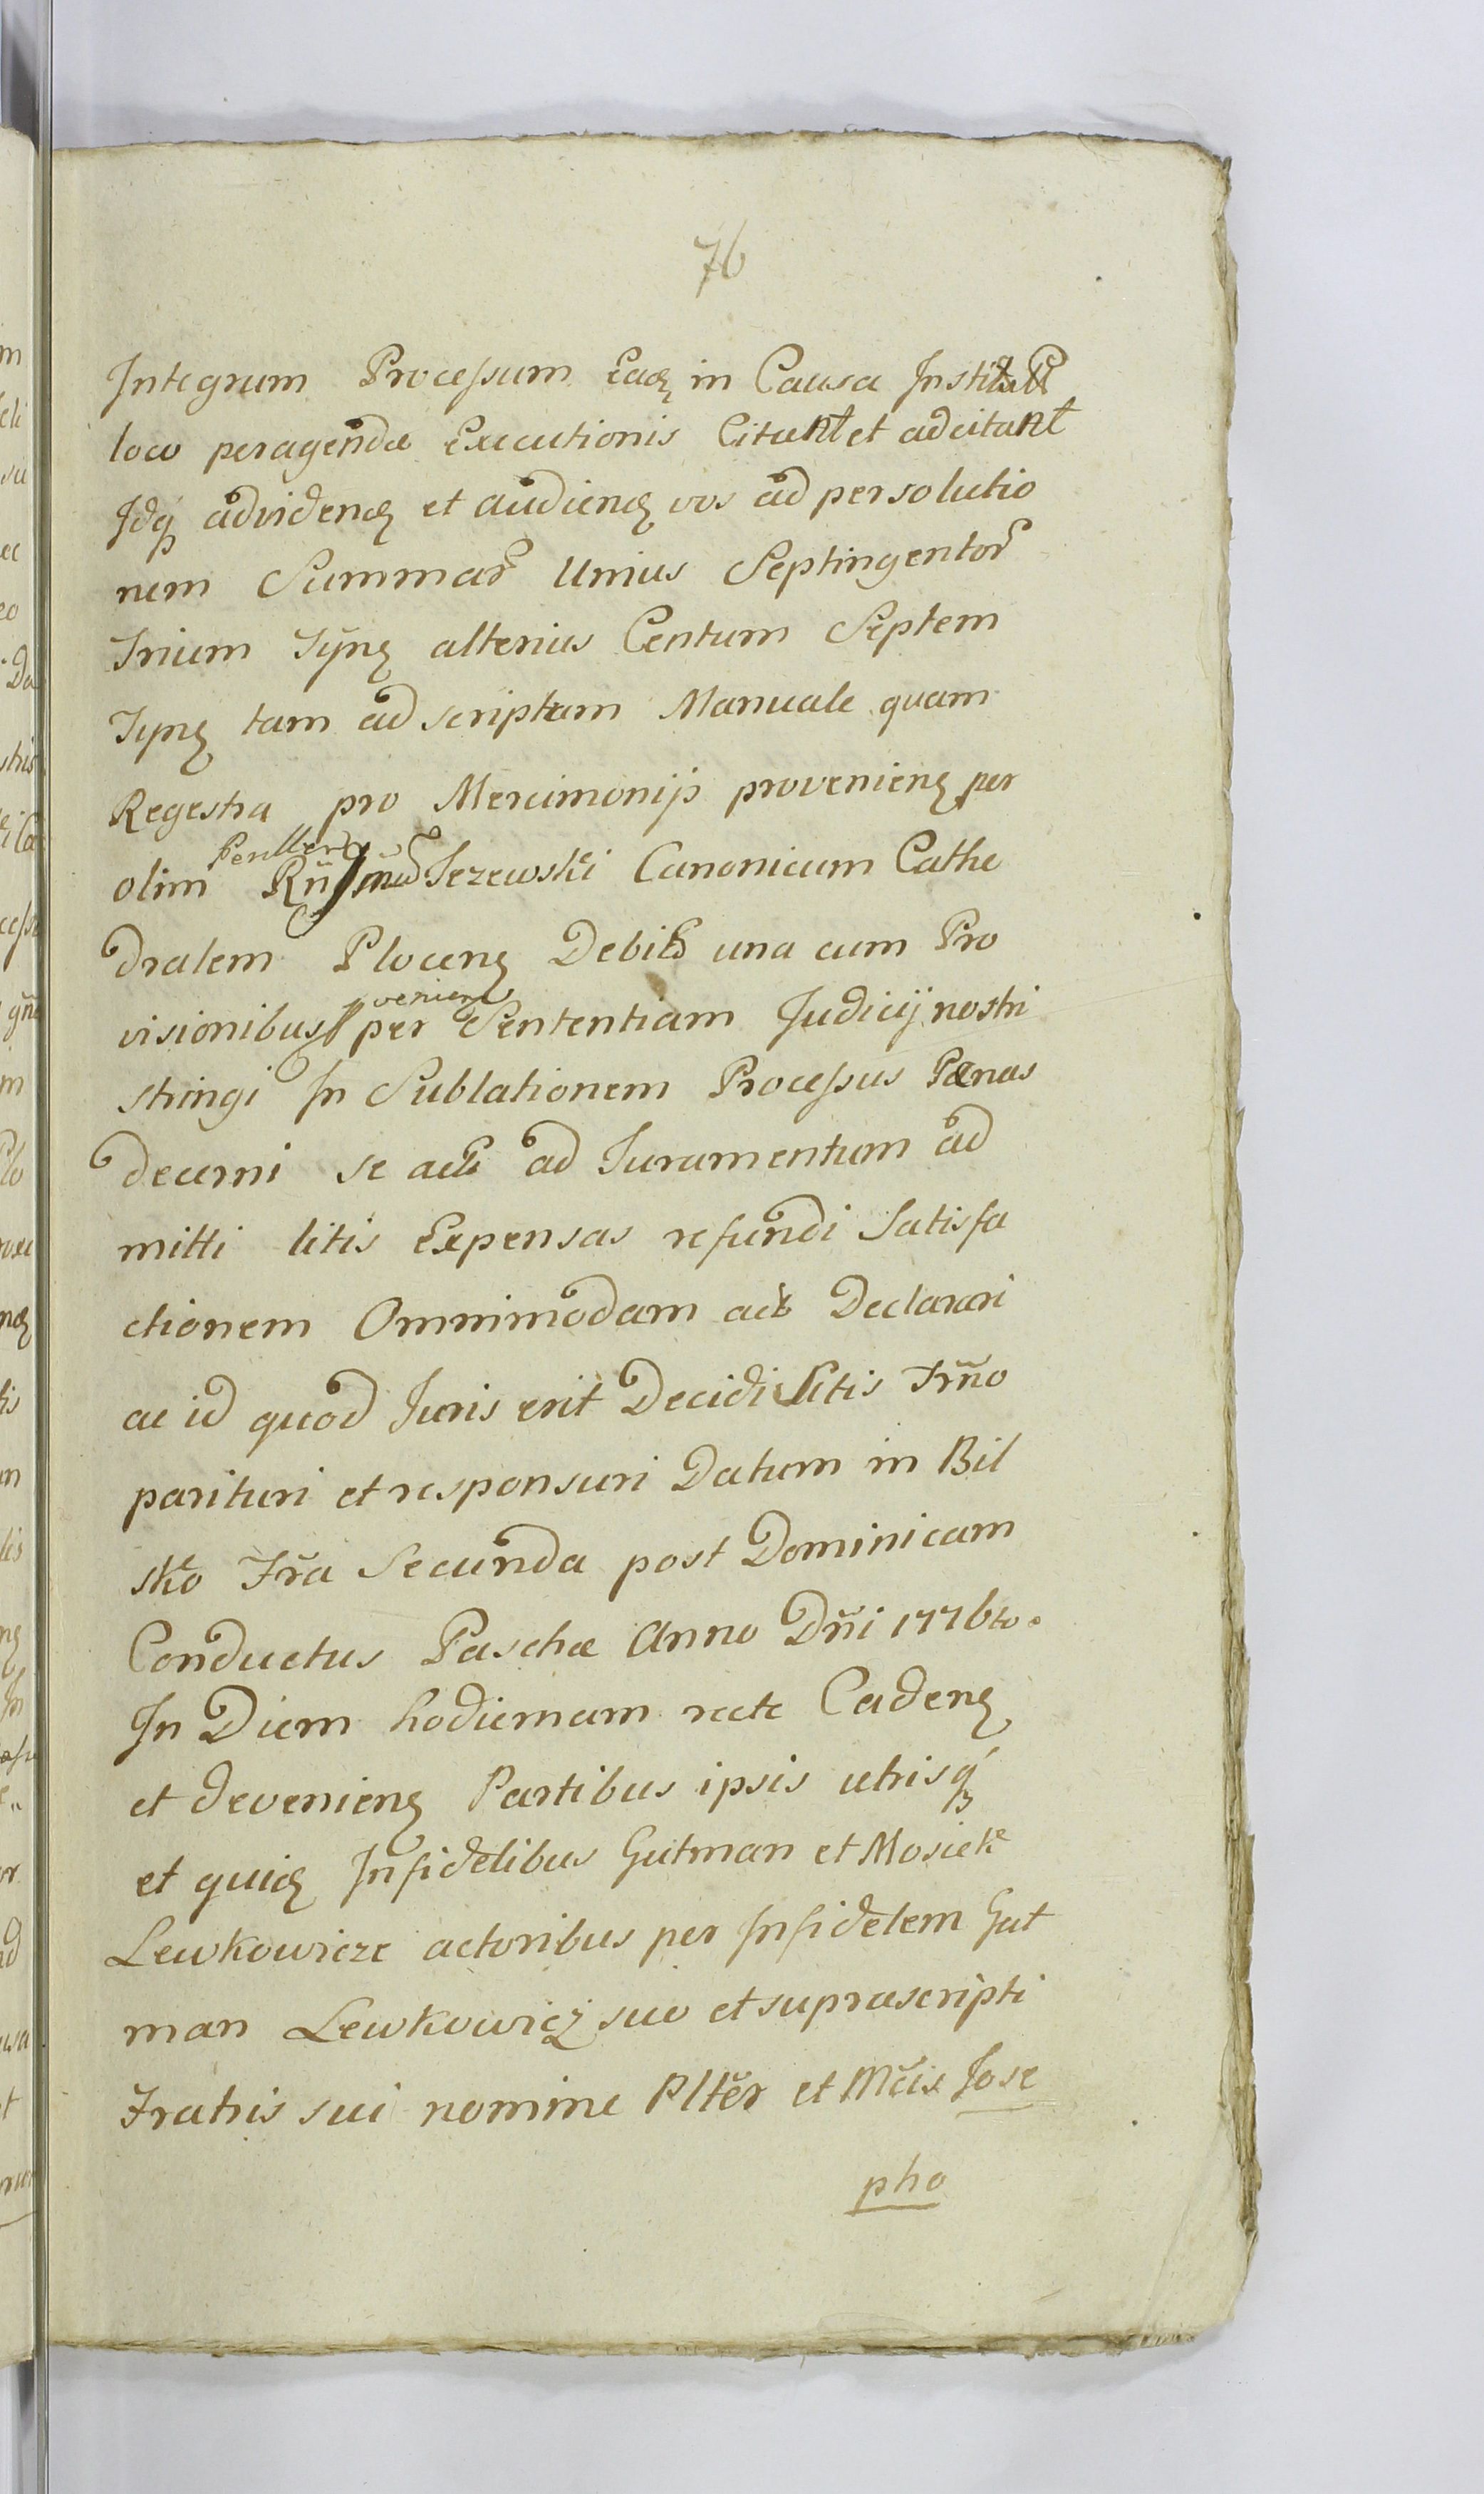 76
Integrum Processum eadȝ in Causa
loco peragendæ Executionis Citant et adcitant
Idq́ȝ advidendȝ et audiendȝ vos ad persolutio
nem Summar̃ Unius Septingentor̃
Trium Tÿnȝ alterius Centum Septem
Tynȝ tam ad scriptam Manuale quam
Regestra pro Mercimonijs provenienȝ per
olim Jezewski Canonicum Cathe
dralem Plocenȝ Debit una cum Pro
visionibus venienȝ per Sententiam Judicij nostri
stringi In Sublationem Processus Pænas
decerni se act ad Juramentum ad
mitti litis Expensas refundi Satisfa
ctionem Omnimodam act Declarari
ac id quod Juris erit Decidi Litis Trño
parituri et responsuri Datum in Bil
sko Fr̃a Secunda post Dominicam
Conductus Paschæ Anno Dñi 1776to.
In Diem hodiernam recte Cadenȝ
et devenienȝ Partibus ipsis utrisq́ȝ
et quidȝ Infidelibus Gutman et Mosiek
Lewkowicze actoribus per Infidelem Gut
man Lewkowicz suo et suprascripti
Fratris sui nomine Pltẽr et Mc̃is Jose
pho